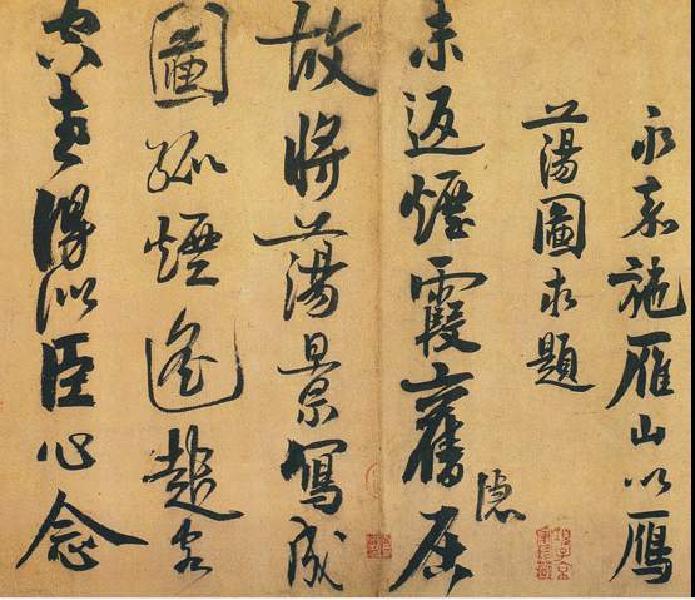 永嘉施雁山以雁
蕩圖求題
隱
未返煙霞舊居
故將蕩景寫成
圖孤煙遙
得似臣心念